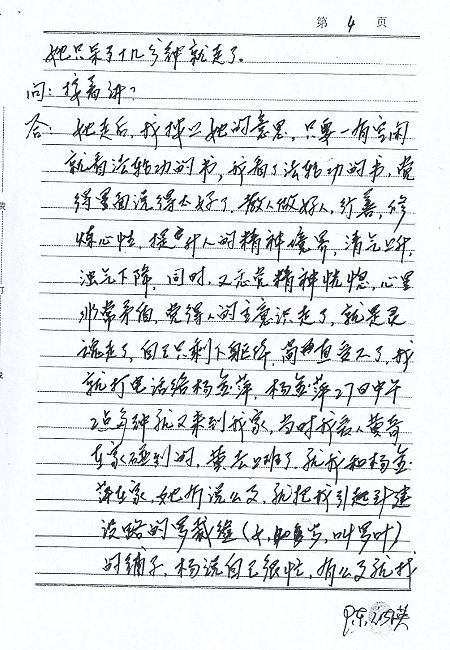 第 4 页
她只呆了十几分钟就走了。
问：接着讲？
答：她走后，我按照她的意思，只要一有空闲
就看法轮功的书，我看了法轮功的书，觉
得里面说得太好了，教人做好人，行善，修
炼心性，提升人的精神境界，清气上升，
浊气下降，同时，又感觉精神恍惚，心里
非常矛盾，觉得人的主意识走了，就是灵
魂走了，自己只剩下躯体，简直变了，我
就打电话给杨金萍，杨金萍27日中午
2点多钟就又来到我家，当时我爱人黄奇
在家碰到的，黄去上班了，就我和杨金
萍在家，她听说以后，就把我引起到建
设路的罗裁缝（女，叫罗叶）
的铺子，杨说自己很忙，有公交就找